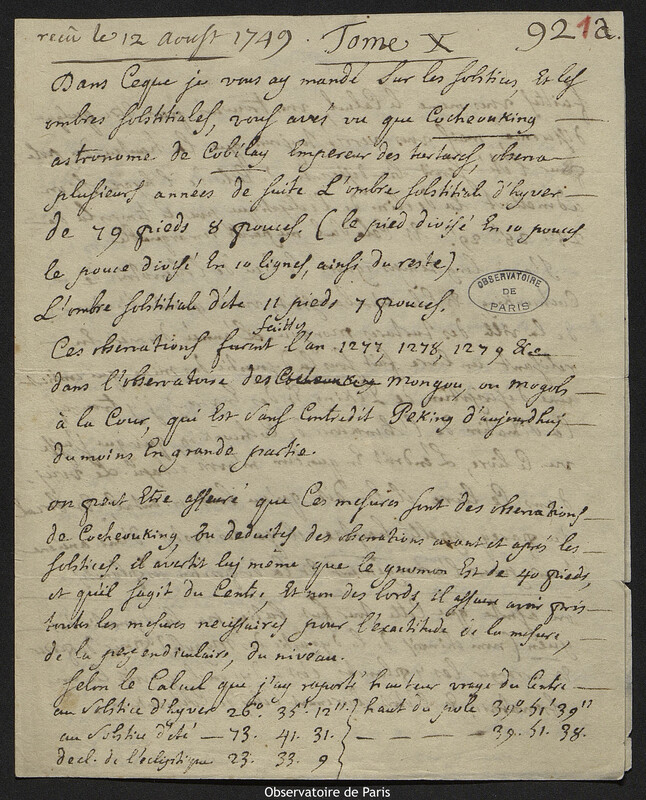 reçu le 12 Aoust 1749. Tome X 92 1 a.
Dans Ceque je vous ay mandé sur les solstices, Et les
ombres solstitiales, vous avés vu que Cocheouking
astronome de Cobilay Empereur des tartares, observa
plusieurs années de suite L'ombre solstitiale d'hyver
de 79 pieds 8 pouces. (le pied divisé En 10 pouces
le pouce divisé En 10 lignes, ainsi du reste).
L'ombre solstitiale d'été 11 pieds 7 pouces.
OBSERVATOIRE DE PARIS
Ces observations furent faittes l'an 1277, 1278, 1279 &c
dans l'observatoire des Cocheouking mongou, ou mogols
à la Cour, qui Est sans Contredit Peking d'aujourdhuj
du moins En grande partie.
on peut Etre assuré que Ces mesures sont des observations
de Cocheouking, ou deduites des observations avant et après les
solstices. il avertit luj même que le gnomon Est de 40 pieds,
et qu'il sagit du Centre Et non des bords, il assure avoir pris
toutes les mesures necessaires pour l'exactitude de la mesure,
de la perpendiculaire, du niveau.
selon le Calcul que j'ay raporté hauteur vraye du Centre
au solstice d'hyver 26° 35' 12'' } haut du pole 39° 51' 39''
au solstice d'été — 73. 41. 31. } — — — — 39. 51. 38.
decl. de l'écliptique 23. 33. 9 }
Observatoire de Paris